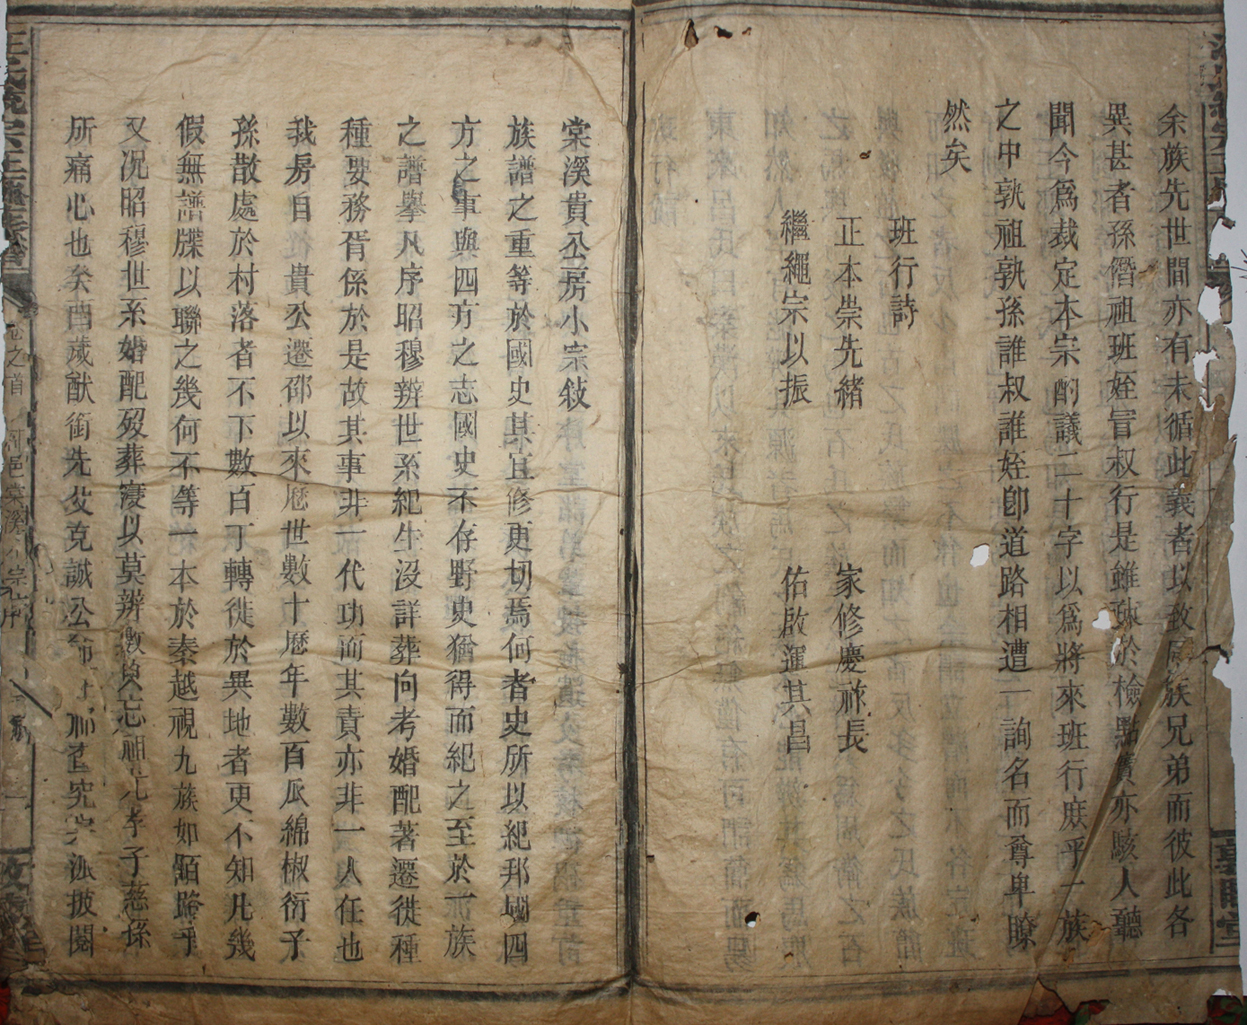 余族先世間亦有未循此義者以致房族兄弟而彼此各
異甚者孫僭祖班姪冒叔行是雖疎於檢點實亦駭人聽
聞今爲裁定本宗酌議二十字以爲將來班行庶乎一族
之中孰祖孰孫誰叔誰姪卽道路相遭一詢名而尊卑瞭
然矣
班行詩
正本崇先緒 家修慶祚長
繼繩宗以振 佑啟運其昌
棠溪貴公房小宗敍
族譜之重等於國史其宜修更切焉何者史所以紀邦國四
方之事與四方之志國史不存野史猶得而紀之至於一族
之譜舉凡序昭穆辨世系紀生沒詳葬向考婚配著遷徙種
種要務胥係於是故其事非一代功而其責亦非一人任也
我房自 貴公遷邵以來歷世數十歷年數百瓜綿椒衍子
孫散處於村落者不下數百丁轉徙於異地者更不知凡幾
假無譜牒以聯之幾何不等一本於秦越視九族如陌路乎
又况昭穆世系婚配歿葬寖以莫辨數負忘祖 孝子慈孫
所痛心也癸酉歲猷銜先父克誠公命 究 派披閱